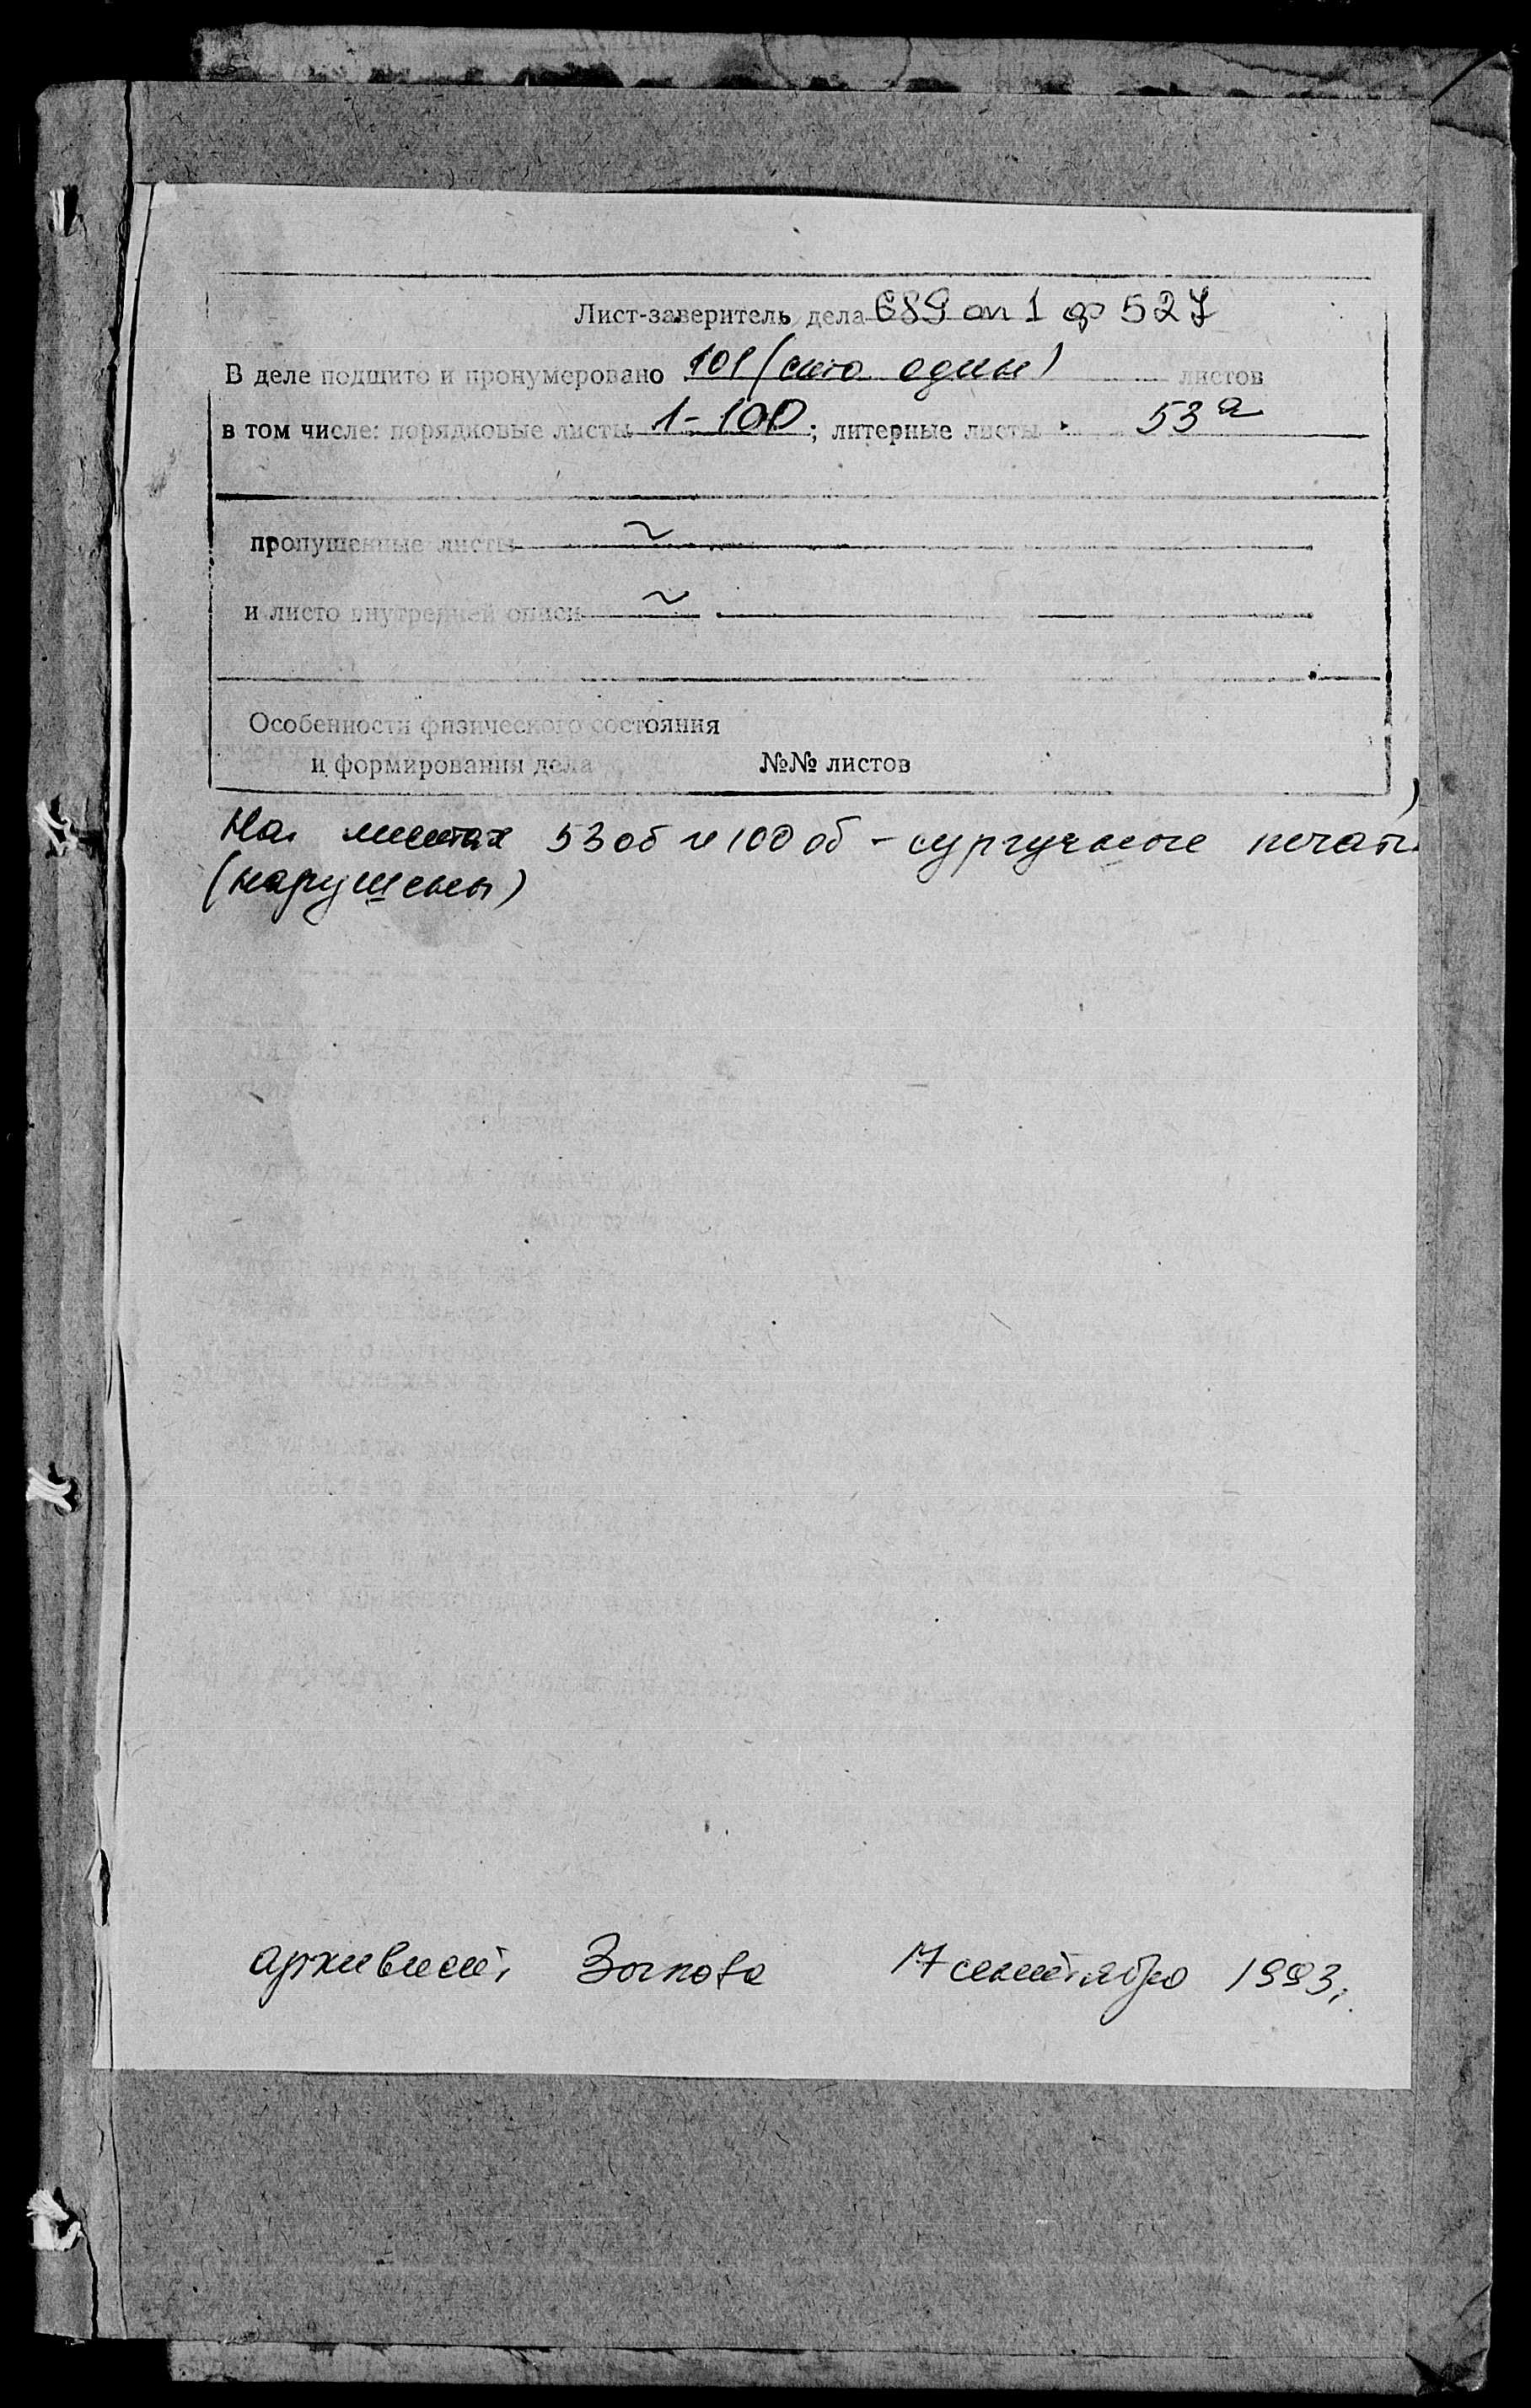 Лист-заверитель дела 689 оп 1 ф 527
В деле подшито и пронумеровано 101 (сто один) листов
в том числе: порядковые листы 1-100; литерные листы 53а
пропущенные листы ~
и листо внутредней описи ~
Особенности физического состояния
и формирования дела №№ листов
На листах 53 об и 100 об - сургучные печати
(нарушены)
архивист 17 сентября 1993г.